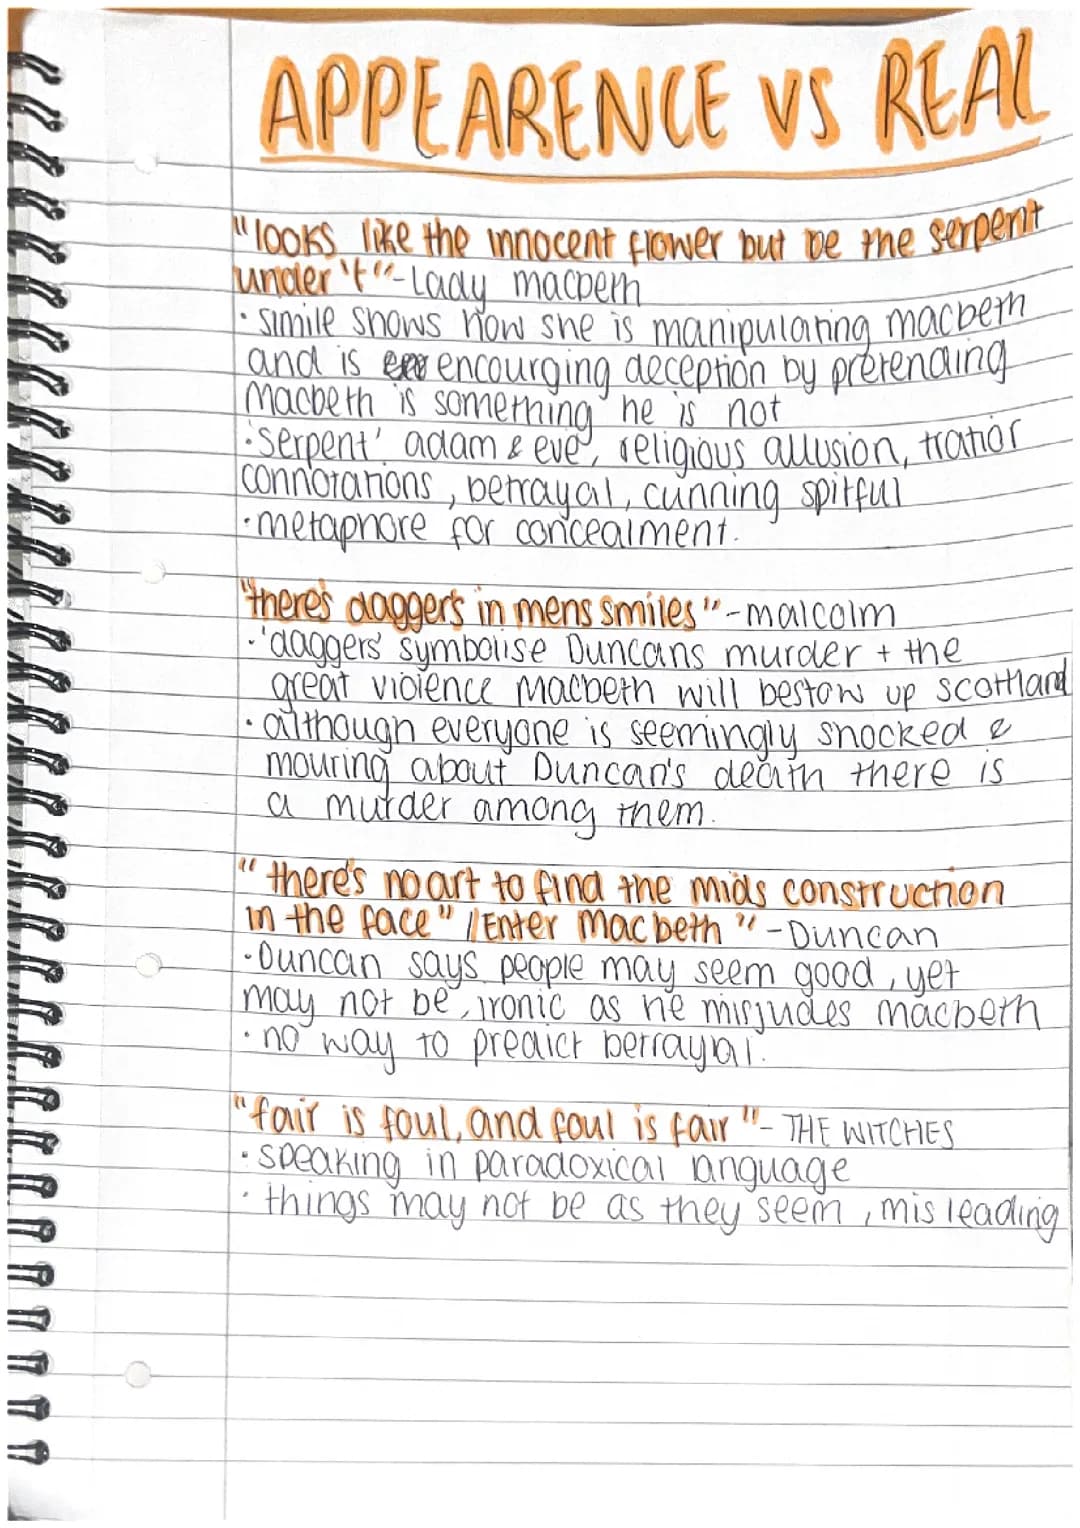 APPEARENCE VS REAL
"looks like the innocent flower but be the serpent
under't"-Lady macbeth
· simile shows how she is manipulating macbeth
and is encourging deception by pretending
Macbeth is something he is not
· 'serpent' adam & eve, religious allusion, tratior
connotations, betrayal, cunning spitful
· metaphore for concealment.
"there's daggers in mens smiles"-malcolm
· 'daggers' symbolise Duncans murder + the
great violence Macbeth will bestow up scotland
· although everyone is seemingly shocked &
mouring about Duncan's death there is
a murder among them.
"there's no art to find the mids construction
in the face" /Enter Macbeth"-Duncan
· Duncan says people may seem good, yet
may not be, ironic as he misjudes macbeth
· no way to predict betrayal.
"fair is foul, and foul is fair"- THE WITCHES
· speaking in paradoxical language
· things may not be as they seem, misleading